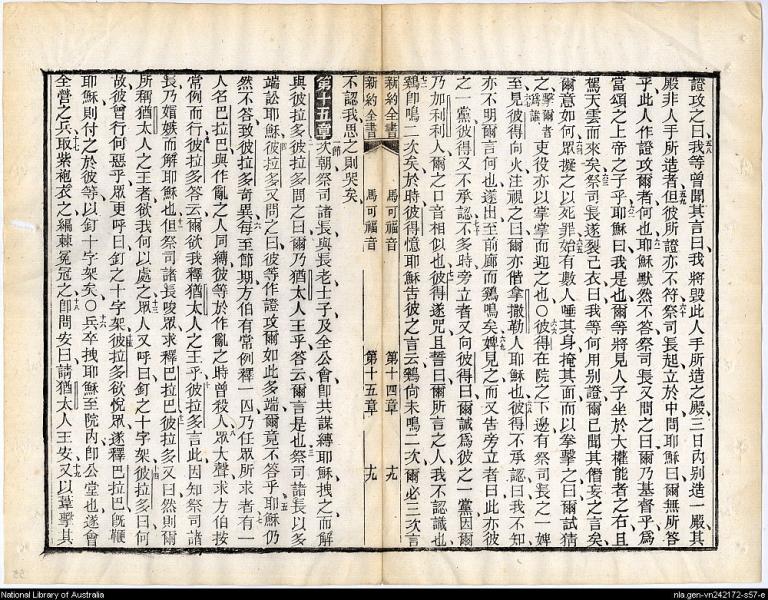 證攻之曰我等曾聞其言曰我將毀此人手所造之殿三日內別造一殿其
殿非人手所造者但彼所證亦不符祭司長起立於中問耶穌曰爾無所答
乎此人作證攻爾者何也耶穌默然不答祭司長又問之曰爾乃基督乎爲
當頌之上帝之子乎耶穌曰我是也爾等將見人子坐於大權能者之右且
駕天雲而來矣祭司長遂裂己衣曰我等何用別證爾已聞其僭妄之言矣
爾意如何眾擬之以死罪始有數人唾其身掩其面而以拳擊之曰爾試猜
之擊爾者爲誰吏役亦以掌而迎之也○彼得在院之下邊有祭司長之一婢
至見彼得向火注視之曰爾亦偕拿撒勒人耶穌也彼得不承認曰我不知
亦不明爾言何也遂出至前廊而鷄鳴矣婢見之而又告旁立者曰此亦彼
之一黨彼得又不承認不多時旁立者又向彼得曰爾誠爲彼之一黨因爾
乃加利利人爾之口音相似也彼得遂咒且誓曰爾所言之人我不認識也
鷄卽鳴二次矣於時彼得憶耶穌告彼之言云鷄尚未鳴二次爾必三次言
新約全書 馬可福音 第十四章 十九
新約全書 馬可福音 第十五章 十九
不認我思之則哭矣
第十五章 一節次朝祭司諸長與長老士子及全公會卽共謀縛耶穌拽之而解
與彼拉多彼拉多問之曰爾乃猶太人王乎答云爾言是也祭司諸長以多
端訟耶穌彼拉多又問之曰彼等作證攻爾如此多端爾竟不答乎耶穌仍
然不答致彼拉多奇異每至節期方伯有常例釋一囚乃任眾所求者有一
人名巴拉巴與作亂之人同縛彼等於作亂之時曾殺人眾大聲求方伯按
常例而行彼拉多答云爾欲我釋猶太人之王乎彼拉多言此因知祭司諸
長乃媢嫉而解耶穌也但祭司諸長唆眾求釋巴拉巴彼拉多又曰然則爾
所稱猶太人之王者欲我何以處之眾人又呼曰釘之十字架彼拉多曰何
故彼曾行何惡乎眾更呼曰釘之十字架彼拉多欲悅眾遂釋巴拉巴旣鞭
耶穌則付之於彼等以釘十字架矣○兵卒拽耶穌至院內卽公堂也遂會
全營之兵取紫袍衣之編棘冕冠之卽問安曰請猶太人王安又以葦擊其
National Library of Australia
nla.gen-vn242172-s57-e